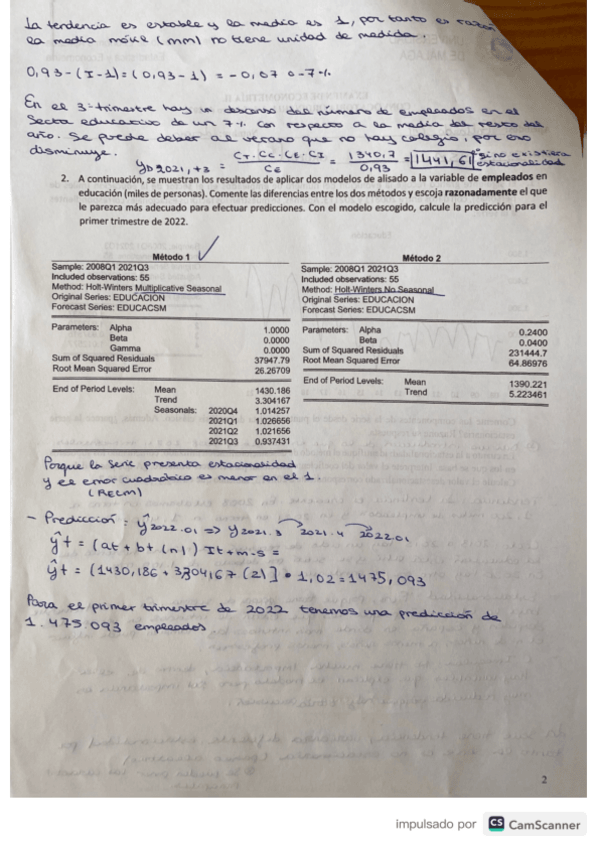 La tendencia es estable y la media es 1, por tanto es razon
la media móvil (mm) no tiene unidad de medida.
0,93-(I-1)=(0,93-1)=-0,07 o -7%
En el 3-trimestre hay un descenso del número de empleados en el
Secto educativo de un 7% con respecto a la media del resto del
año. Se puede deber al verano que no hay colegio, por eso
disminuye.
yD2021,t3 = CT.CC.CE.CI / CE = 1340,7 / 0,93 = 1441,61 si no existiera estacionalidad
2. A continuación, se muestran los resultados de aplicar dos modelos de alisado a la variable de empleados en
educación (miles de personas). Comente las diferencias entre los dos métodos y escoja razonadamente el que
le parezca más adecuado para efectuar predicciones. Con el modelo escogido, calcule la predicción para el
primer trimestre de 2022.
Método 1
Sample: 2008Q1 2021Q3
Included observations: 55
Method: Holt-Winters Multiplicative Seasonal
Original Series: EDUCACION
Forecast Series: EDUCACSM
Parameters: Alpha 1.0000
Beta 0.0000
Gamma 0.0000
Sum of Squared Residuals 37947.79
Root Mean Squared Error 26.26709
End of Period Levels: Mean 1430.186
Trend 3.304167
Seasonals: 2020Q4 1.014257
2021Q1 1.026656
2021Q2 1.021656
2021Q3 0.937431
Método 2
Sample: 2008Q1 2021Q3
Included observations: 55
Method: Holt-Winters No Seasonal
Original Series: EDUCACION
Forecast Series: EDUCACSM
Parameters: Alpha 0.2400
Beta 0.0400
Sum of Squared Residuals 231444.7
Root Mean Squared Error 64.86976
End of Period Levels: Mean 1390.221
Trend 5.223461
Porque la serie presenta estacionalidad
y el error cuadrático es menor en el 1.
(RECM)
- Predicción: ŷ2022.01 => y2021.3 2021.4 2022.01
ŷt = (at + bt (n)) It+m-s =
ŷt = (1430,186 + 3,304167 (2)] • 1,02 = 1475,093
Para el primer trimestre de 2022 tenemos una predicción de
1.475 093 empleados
2
impulsado por CS CamScanner